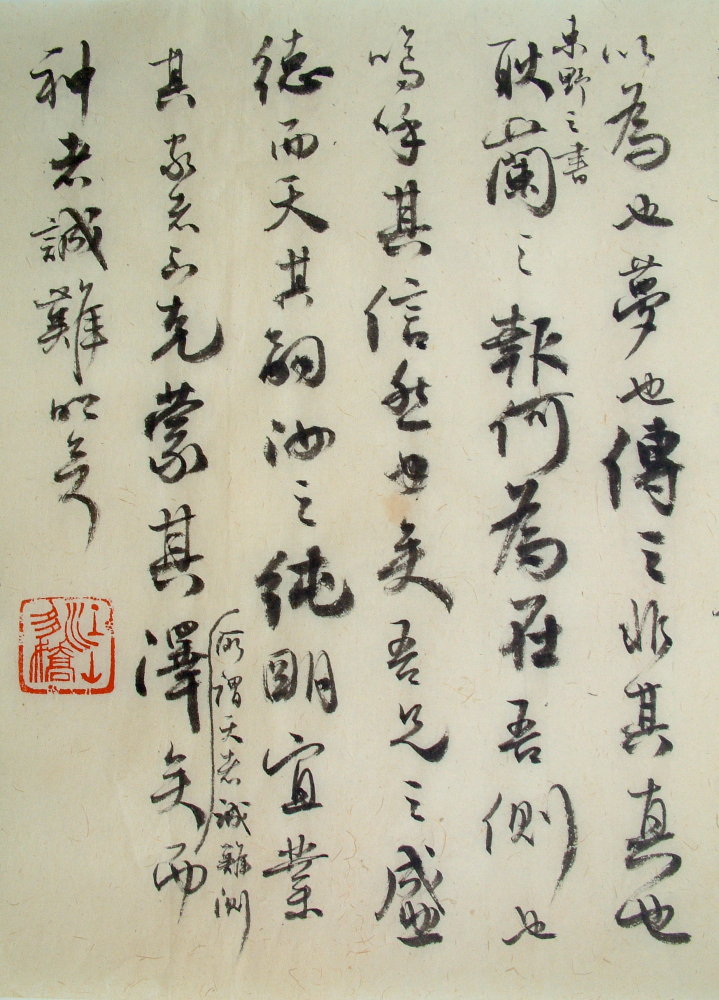 以為也夢也傳之非其真也
東野之書
耿蘭之報何為在吾側也
嗚呼其信然也矣吾兄之盛
德而夭其嗣汝之純明宜業
所謂天者誠難測
其家者不克蒙其澤矣而
神者誠難明矣
江山
多嬌